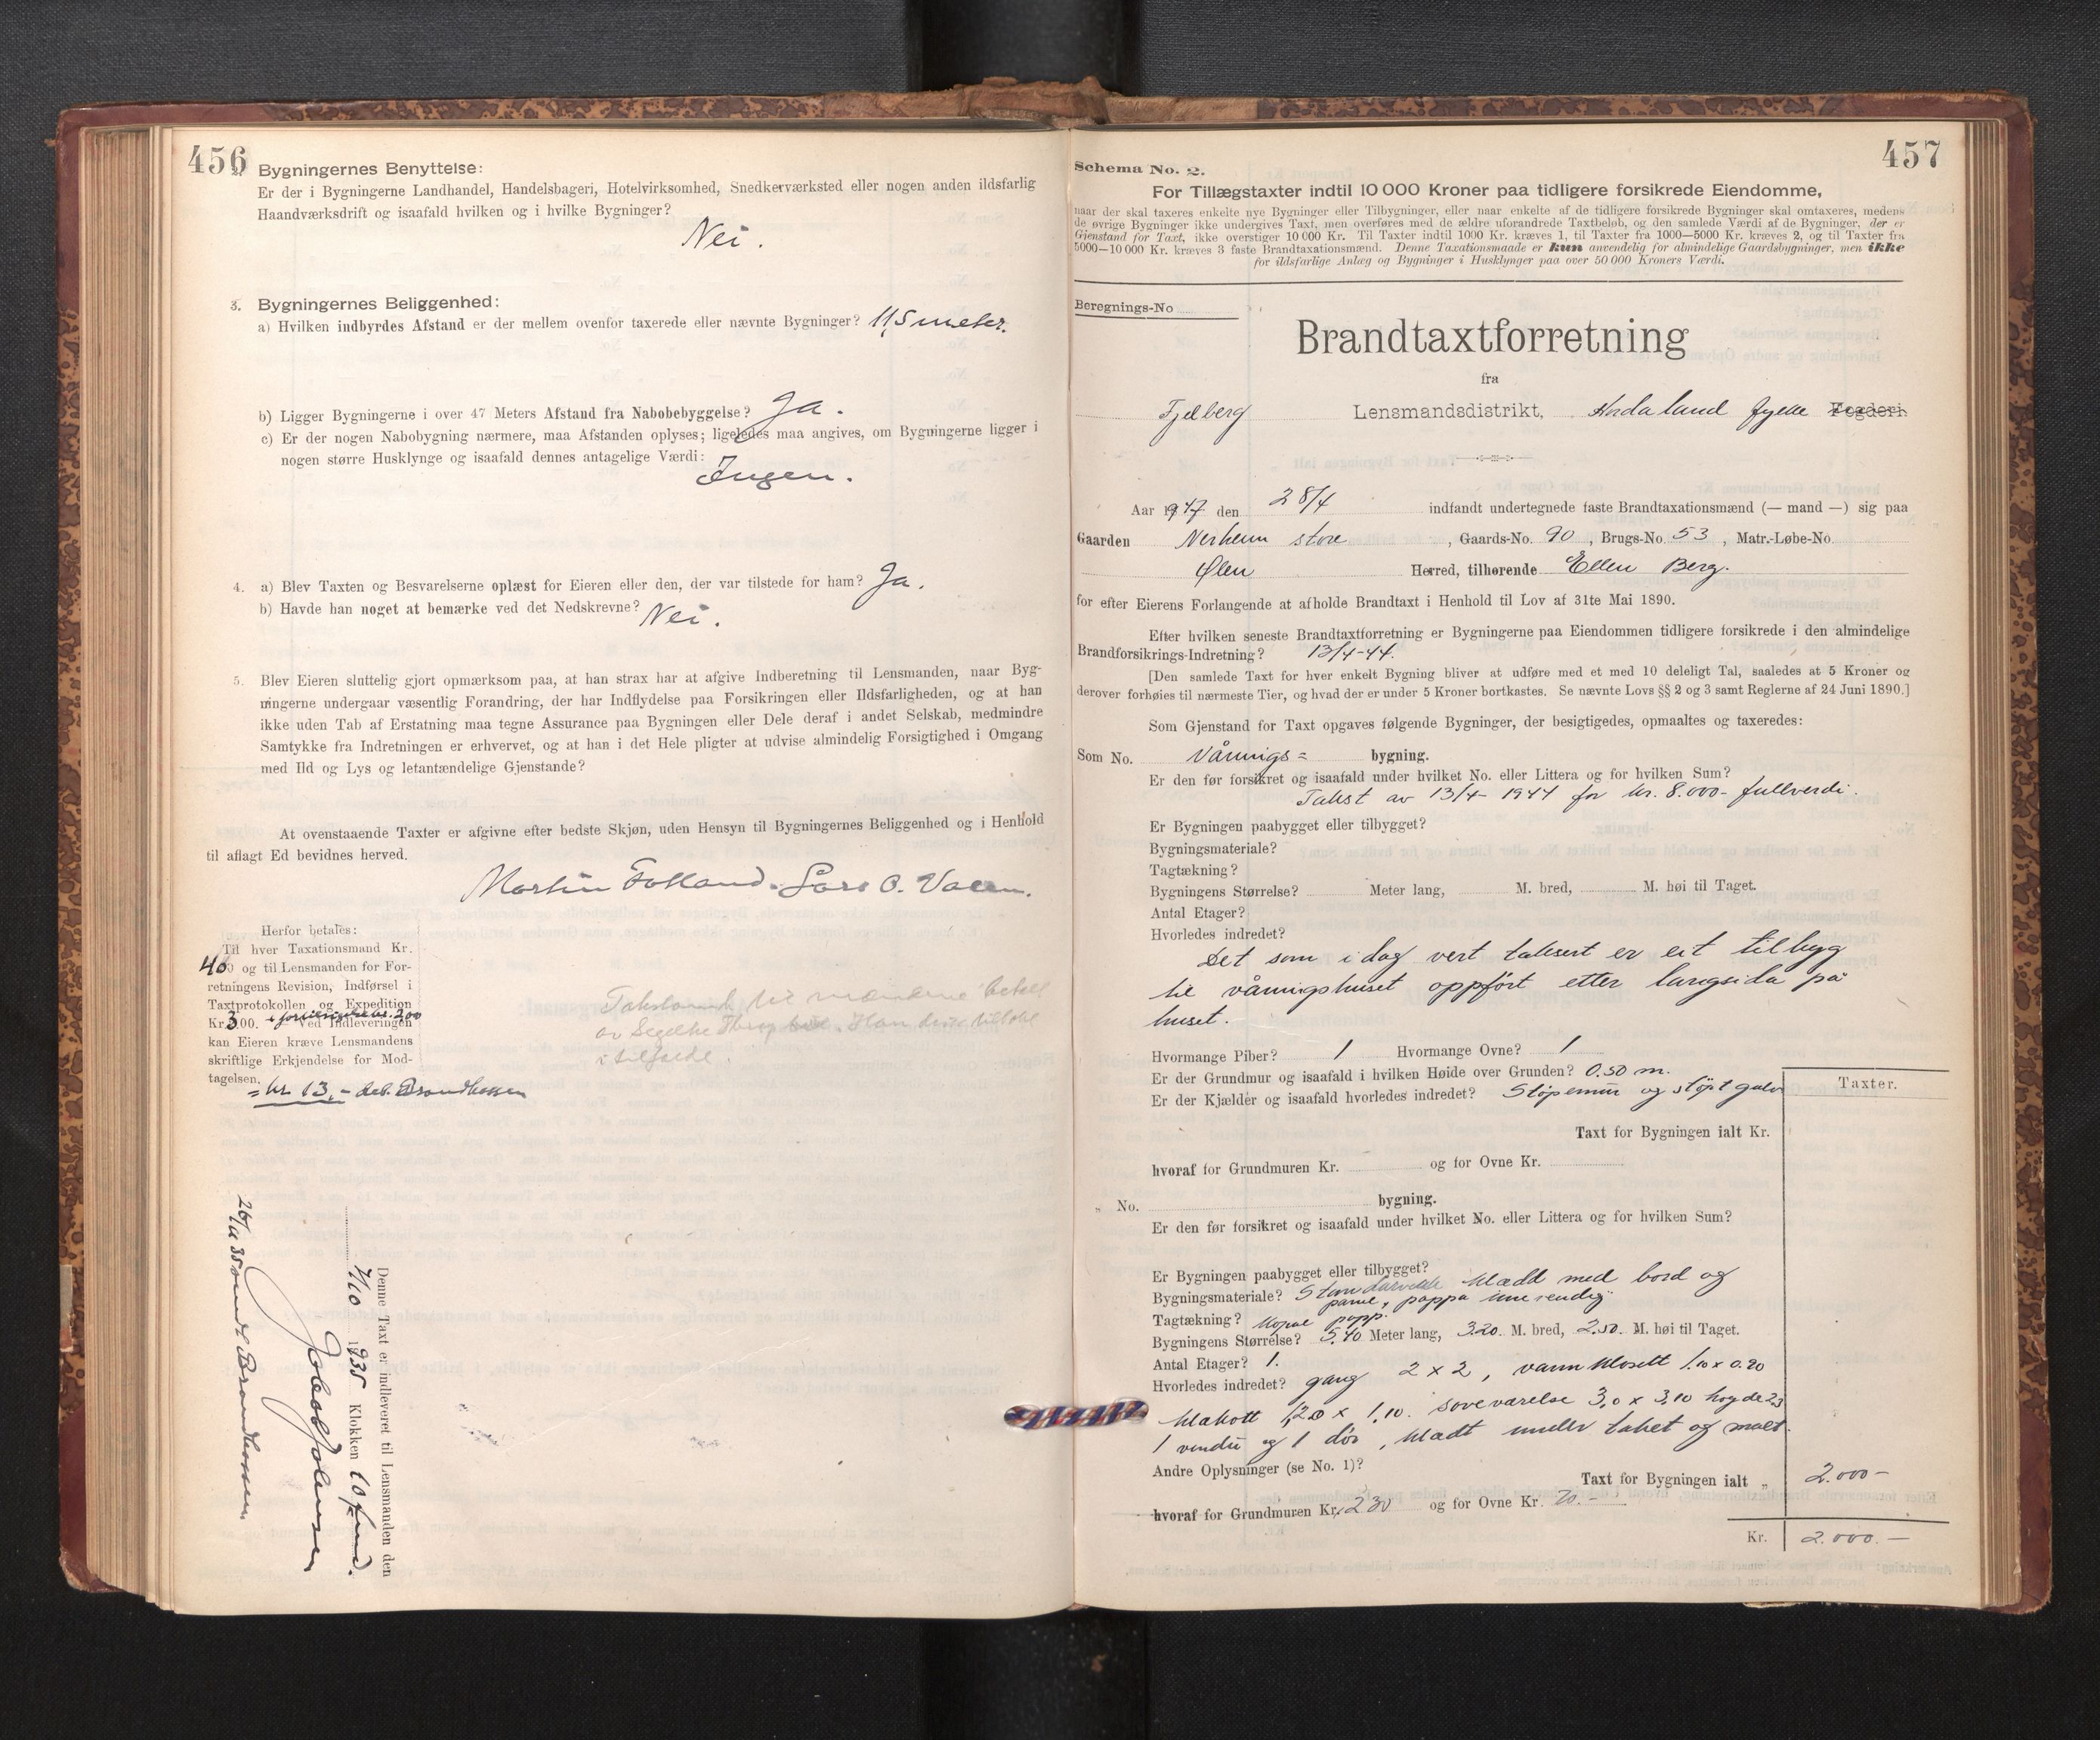 456
2. Bygningernes Benyttelse:
Er der i Bygningerne Landhandel, Handelsbageri, Hotelvirksomhed, Snedkerværksted eller nogen anden ildsfarlig
Haandværksdrift og isaafald hvilken og i hvilke Bygninger?
Nei.
3. Bygningernes Beliggenhed:
a) Hvilken indbyrdes Afstand er der mellem ovenfor taxerede eller nævnte Bygninger? 11,5 meter.
b) Ligger Bygningerne i over 47 Meters Afstand fra Nabobebyggelse? Ja.
c) Er der nogen Nabobygning nærmere, maa Afstanden oplyses; ligeledes maa angives, om Bygningerne ligger i
nogen større Husklynge og isaafald dennes antagelige Værdi:
Ingen.
4. a) Blev Taxten og Besvarelserne oplæst for Eieren eller den, der var tilstede for ham? Ja.
b) Havde han noget at bemærke ved det Nedskrevne? Nei.
5. Blev Eieren sluttelig gjort opmærksom paa, at han strax har at afgive Indberetning til Lensmanden, naar Byg-
ningerne undergaar væsentlig Forandring, der har Indflydelse paa Forsikringen eller Ildsfarligheden, og at han
ikke uden Tab af Erstatning maa tegne Assurance paa Bygningen eller Dele deraf i andet Selskab, medmindre
Samtykke fra Indretningen er erhvervet, og at han i det Hele pligter at udvise almindelig Forsigtighed i Omgang
med Ild og Lys og letantændelige Gjenstande?
At ovenstaaende Taxter er afgivne efter bedste Skjøn, uden Hensyn til Bygningernes Beliggenhed og i Henhold
til aflagt Ed bevidnes herved.
Martin Lars O.
Herfor betales:
Til hver Taxationsmand Kr.
4 og til Lensmanden for For-
retningens Revision, Indførsel i
Taxtprotokollen og Expedition
Kr. 3.00. Ved Indleveringen
kan Eieren kræve Lensmandens
skriftlige Erkjendelse for Mod-
tagelsen.
= kr. 13,- deb. Brandkassen
Denne Taxt er indleveret til Lensmanden den
7/10 1935 Klokken 10 fmd.
Jakob
26/11 35 sendt Brandkassen
457
Schema No. 2.
For Tillægstaxter indtil 10 000 Kroner paa tidligere forsikrede Eiendomme,
naar der skal taxeres enkelte nye Bygninger eller Tilbygninger, eller naar enkelte af de tidligere forsikrede Bygninger skal omtaxeres, medens
de øvrige Bygninger ikke undergives Taxt, men overføres med de ældre uforandrede Taxtbeløb, og den samlede Værdi af de Bygninger, der er
Gjenstand for Taxt, ikke overstiger 10 000 Kr. Til Taxter indtil 1000 Kr. kræves 1, til Taxter fra 1000—5000 Kr. kræves 2, og til Taxter fra
5000—10 000 Kr. kræves 3 faste Brandtaxationsmænd. Denne Taxationsmaade er kun anvendelig for almindelige Gaardsbygninger, men ikke
for ildsfarlige Anlæg og Bygninger i Husklynger paa over 50 000 Kroners Værdi.
Beregnings-No
Brandtaxtforretning
fra
Fjelberg Lensmandsdistrikt, Hordaland fylke Fogderi
Aar 1947 den 28/4 indfandt undertegnede faste Brandtaxationsmænd (— mand —) sig paa
Gaarden Nerheim store, Gaards-No. 90, Brugs-No. 53, Matr.-Løbe-No.
Ølen Herred, tilhørende Ellen Berg.
for efter Eierens Forlangende at afholde Brandtaxt i Henhold til Lov af 31te Mai 1890.
Efter hvilken seneste Brandtaxtforretning er Bygningerne paa Eiendommen tidligere forsikrede i den almindelige
Brandforsikrings-Indretning? 13/4-44.
[Den samlede Taxt for hver enkelt Bygning bliver at udføre med et med 10 deleligt Tal, saaledes at 5 Kroner og
derover forhøies til nærmeste Tier, og hvad der er under 5 Kroner bortkastes. Se nævnte Lovs §§ 2 og 3 samt Reglerne af 24 Juni 1890.]
Som Gjenstand for Taxt opgaves følgende Bygninger, der besigtigedes, opmaaltes og taxeredes:
Som No. Vånings= bygning.
Er den før forsikret og isaafald under hvilket No. eller Littera og for hvilken Sum?
Takst av 13/4-1944 for kr. 8.000- fullverdi.
Er Bygningen paabygget eller tilbygget?
Bygningsmateriale?
Tagtækning?
Bygningens Størrelse? Meter lang, M. bred, M. høi til Taget.
Antal Etager?
Hvorledes indredet?
Det som i dag vert taksert er eit tilbygg
til våningshuset oppført etter langsida på
huset.
Hvormange Piber? 1 Hvormange Ovne? 1
Er der Grundmur og isaafald i hvilken Høide over Grunden? 0.50 m.
Er der Kjælder og isaafald hvorledes indredet? Støpemur og støpt golv
Taxter.
Taxt for Bygningen ialt Kr.
hvoraf for Grundmuren Kr. og for Ovne Kr.
„ No. bygning.
Er den før forsikret og isaafald under hvilket No. eller Littera og for hvilken Sum?
Er Bygningen paabygget eller tilbygget?
Bygningsmateriale? klædd med bord og
panel, papp innvendig
Tagtækning? papp.
Bygningens Størrelse? 5.40 Meter lang, 3.20 M. bred, 2.50 M. høi til Taget.
Antal Etager? 1.
Hvorledes indredet? gang 2 x 2, vannklosett 1.10 x 0.90
1,20 x 1,10. soveværelse 3,0 x 3,10 høgde 2,3
1 vindu og 1 dør, klædt under taket og malt.
Andre Oplysninger (se No. 1)?
Taxt for Bygningen ialt „ 2.000-
hvoraf for Grundmuren Kr. 230 og for Ovne Kr. 70.-
Kr. 2.000.-